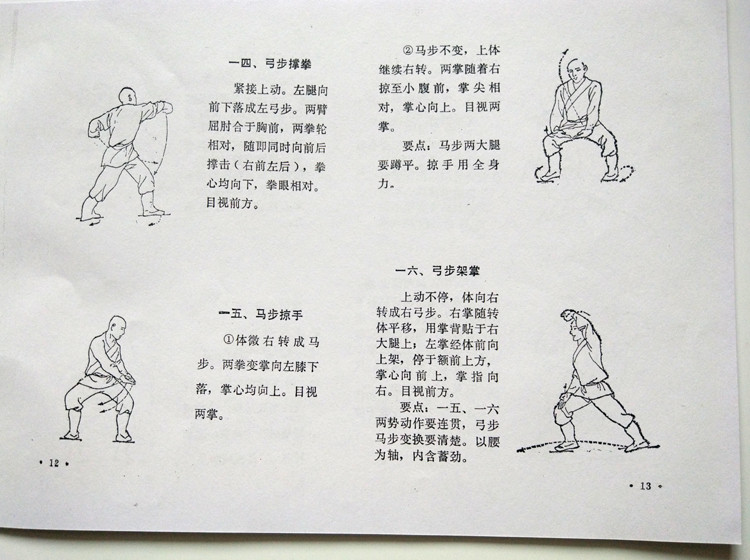 一四、弓步撑拳
紧接上动。左腿向
前下落成左弓步。两臂
屈肘合于胸前，两拳轮
相对，随即同时向前后
撑击（右前左后），拳
心均向下，拳眼相对。
目视前方。
一五、马步掠手
①体微右转成马
步。两拳变掌向左膝下
落，掌心均向上。目视
两掌。
• 12 •
②马步不变，上体
继续右转。两掌随着右
掠至小腹前，掌尖相
对，掌心向上。目视两
掌。
要点：马步两大腿
要蹲平。掠手用全身
力。
一六、弓步架掌
上动不停，体向右
转成右弓步。右掌随转
体平移，用掌背贴于右
大腿上；左掌经体前向
上架，停于额前上方，
掌心向前上，掌指向
右。目视前方。
要点：一五、一六
两势动作要连贯，弓步
马步变换要清楚。以腰
为轴，内含蓄劲。
• 13 •